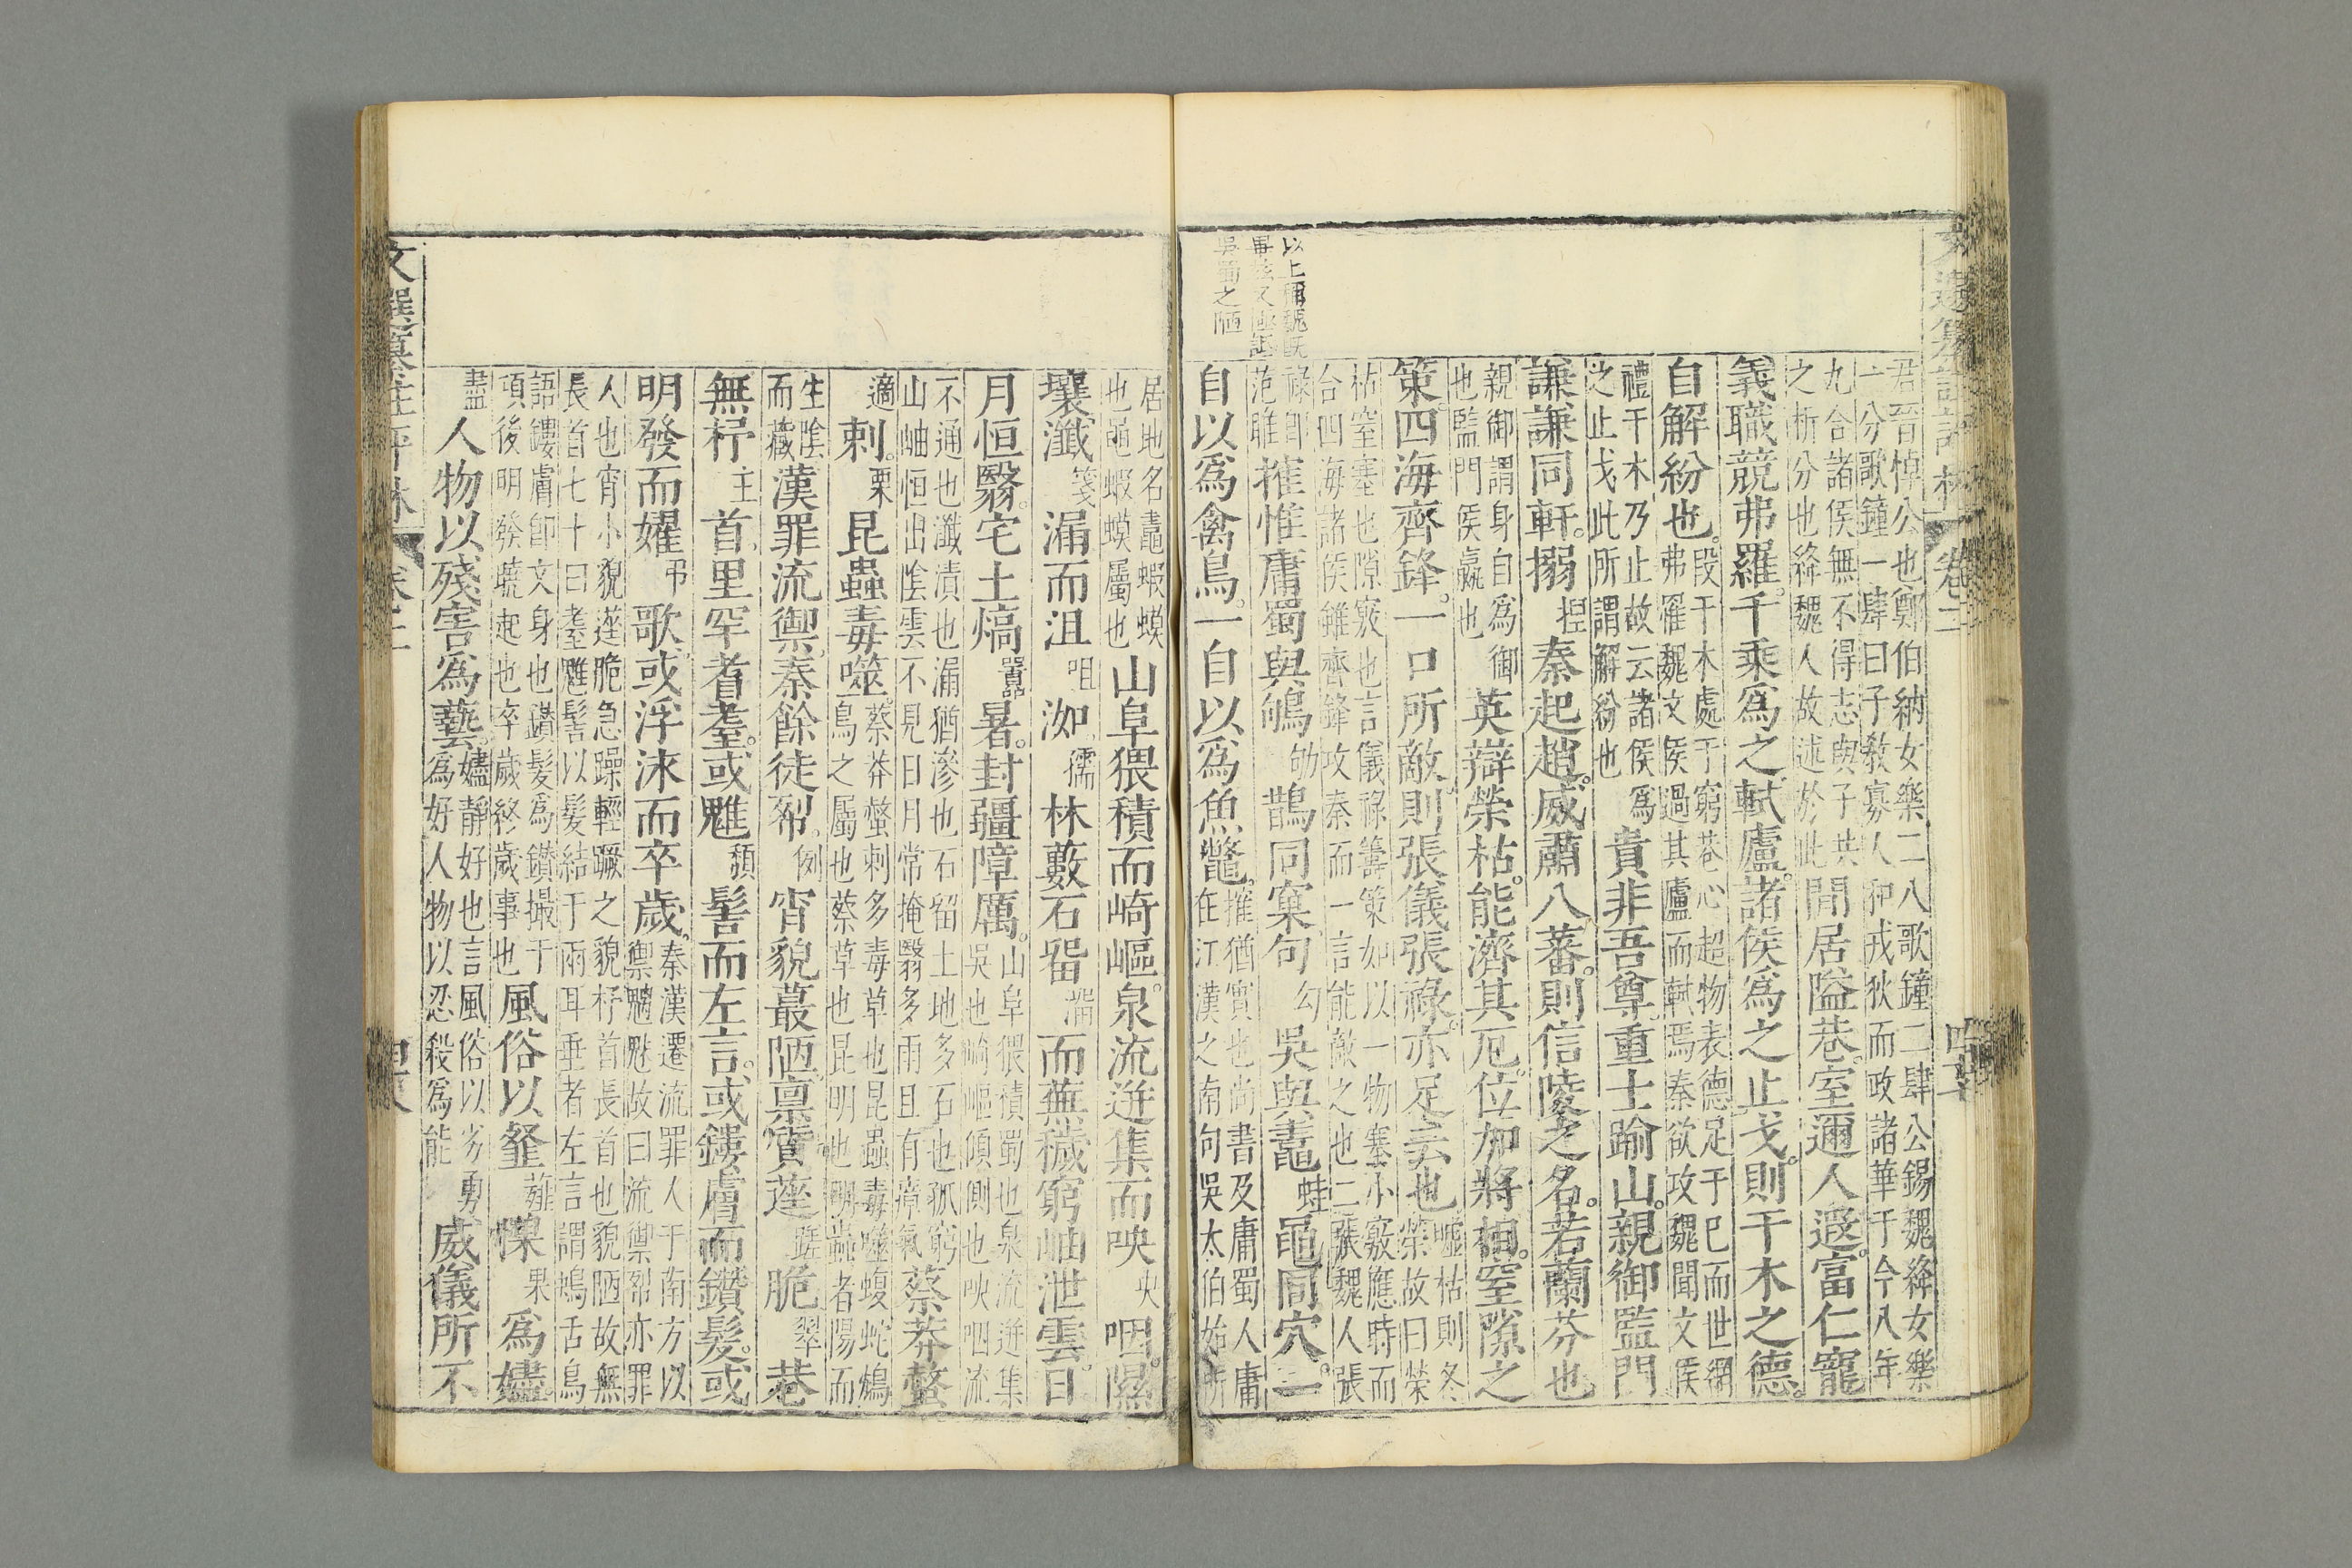 君晉悼公也鄭伯納女樂二八歌鐘二肆公錫魏絳女樂
一八歌鐘一肆曰子敎寡人和戎狄而政諸華于今八年
九合諸侯無不得志與子共
之析分也絳魏人故述於此
閒居隘巷。室邇人遐。富仁寵
義職競弗羅。千乘爲之軾廬。諸侯爲之止戈。則干木之德。
自解紛也。
段干木處于窮巷心超物表德足于已而世網
弗羅魏文侯過其廬而軾焉秦欲攻魏聞文侯
禮干木乃止故云諸侯爲
之止戈此所謂解紛也
貴非吾尊。重士踰山。親御監門
謙謙同軒。搦
揑
秦起趙。威肅八蕃。則信陵之名。若蘭芬也
親御謂身自爲御
也監門侯嬴也
英辯榮枯。能濟其厄。位加將相。窒隙之
策。四海齊鋒。一口所敵。則張儀張祿。亦足云也
噓枯則冬
榮故曰榮
枯窒塞也隙竅也言儀祿籌策如以一物塞小竅應時而
合四海諸侯雖齊鋒攻秦而一言能敵之也二張魏人張
祿卽
范雎
搉惟庸蜀與鴝
劬
鵲同窠句
勾
吳與鼃
蛙
黽同穴。一
自以爲禽鳥。一自以爲魚鼈。
搉猶實也尚書及庸蜀人庸
在江漢之南句吳太伯始所
以上稱魏旣
畢玆又極詆
吳蜀之陋
文選纂註評林
卷二
居地名鼃蝦蟆
也黽蝦蟆屬也
山阜猥積而崎嶇。泉流迸集而咉
央
咽。隰
壤瀸
箋
漏而沮
咀
洳
孺
林藪石畱
溜
而蕪穢窮岫泄雲。日
月恒翳。宅土熇
囂
暑。封疆障厲。
山阜猥積蜀也泉流迸集
吳也崎嶇傾側也咉咽流
不通也瀸漬也漏猶滲也石畱土地多石也孤窮
山岫恒出陰雲不見日月常掩翳多雨且有瘴氣
蔡莽螫
適
刺。
栗
昆蟲毒噬。
蔡莽螫刺多毒草也昆蟲毒噬蝮蛇鴆
鳥之屬也蔡草也昆明也明蟲者陽而
生陰
而藏
漢罪流禦。秦餘徒𠛱。
例
宵貌蕞陋。禀質蓌
蹉
脆
翠
巷
無杼
主
首。里罕耆耋。或魋
頹
髻而左言。或鏤膚而鑽髮。或
明發而嬥
弔
歌。或浮泳而卒歲。
秦漢遷流罪人于南方以
禦魑魅故曰流禦𠛱亦罪
人也宵小貌蓌脆急躁輕蹶之貌杼首長首也貌陋故無
長首七十曰耋魋髻以髮結于兩耳垂者左言謂鴂舌鳥
語鏤膚卽文身也鑽髮爲鑽撮于
項後明發曉起也卒歲終歲事也
風俗以韰
薤
惈
果
爲嫿。
盡
人物以殘害爲藝。
嫿靜好也言風俗以劣勇
爲好人物以忍殺爲能
威儀所不
文選纂註評林
卷二
四